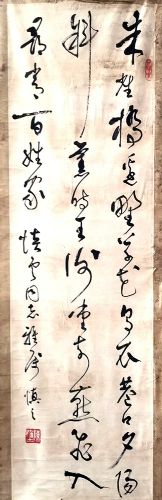 朱雀橋邊野草花烏衣巷口夕陽
斜舊時王謝堂前燕飛入
尋常百姓家 同志雅属 慎之